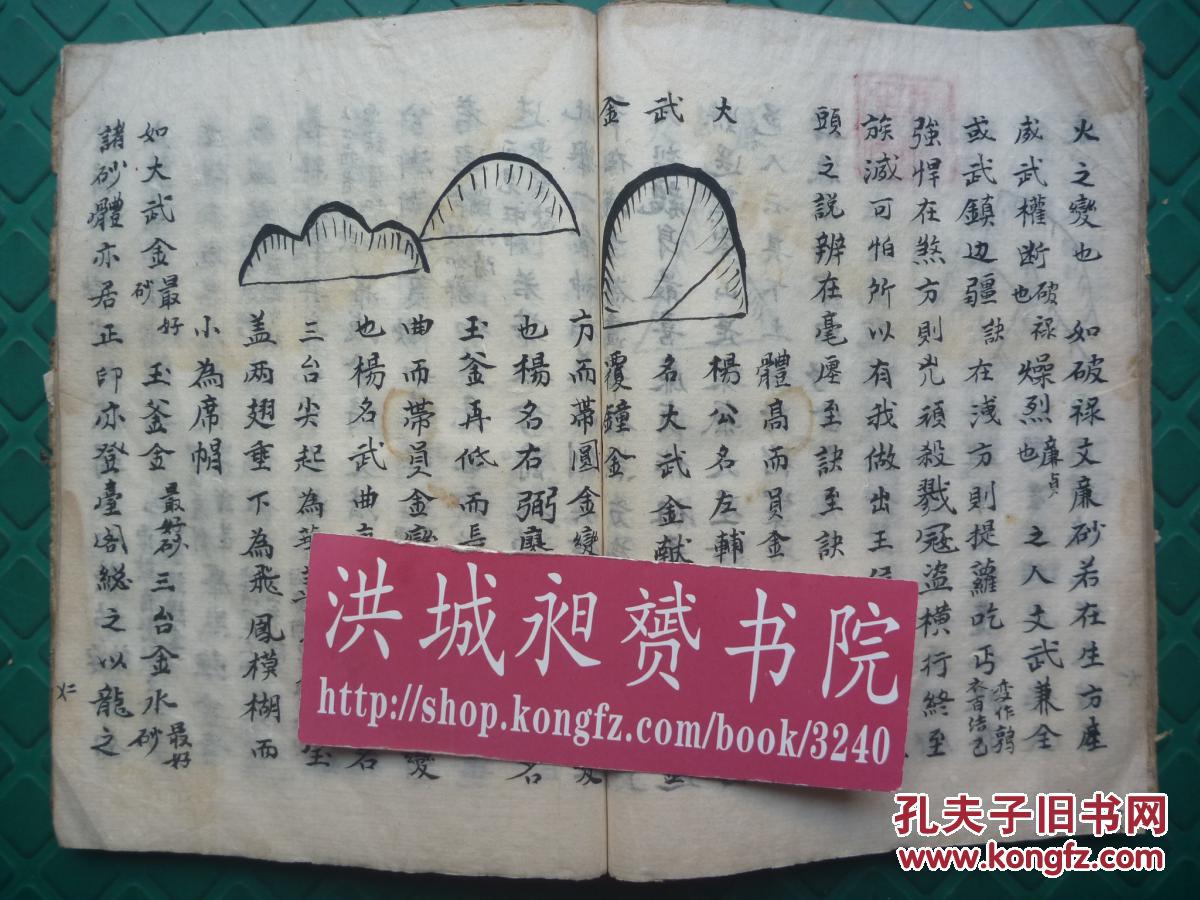 火之變也 如破祿文廉砂若在生方座
威武權斷也 破祿燥烈也 廉貞之人文武兼全
或武鎮边疆 訣在淺方則提蘿吃丐 衣百结已 变作鹑
強悍在煞方則兇頑殺戮冦盗横行終至
族滅可怕所以有我做出王
頭之説辨在毫厘至訣至訣
體高而員金
大 楊公名左輔
武 名大武金献
金 覆鐘金
方而帶圓金變
也楊名右弼廉 名
玉釜再低而長
曲而帶員金變 變
也楊名武曲 名
三台尖起為華
盖兩翅垂下為飛鳳模糊而
小為席帽
如大武金最好砂 玉釜金最好砂 三台金水砂最好
諸砂體亦居正印亦登臺阁縂之以龍之
洪城昶赟书院
http://shop.kongfz.com/book/3240
孔夫子旧书网
www.kongfz.com